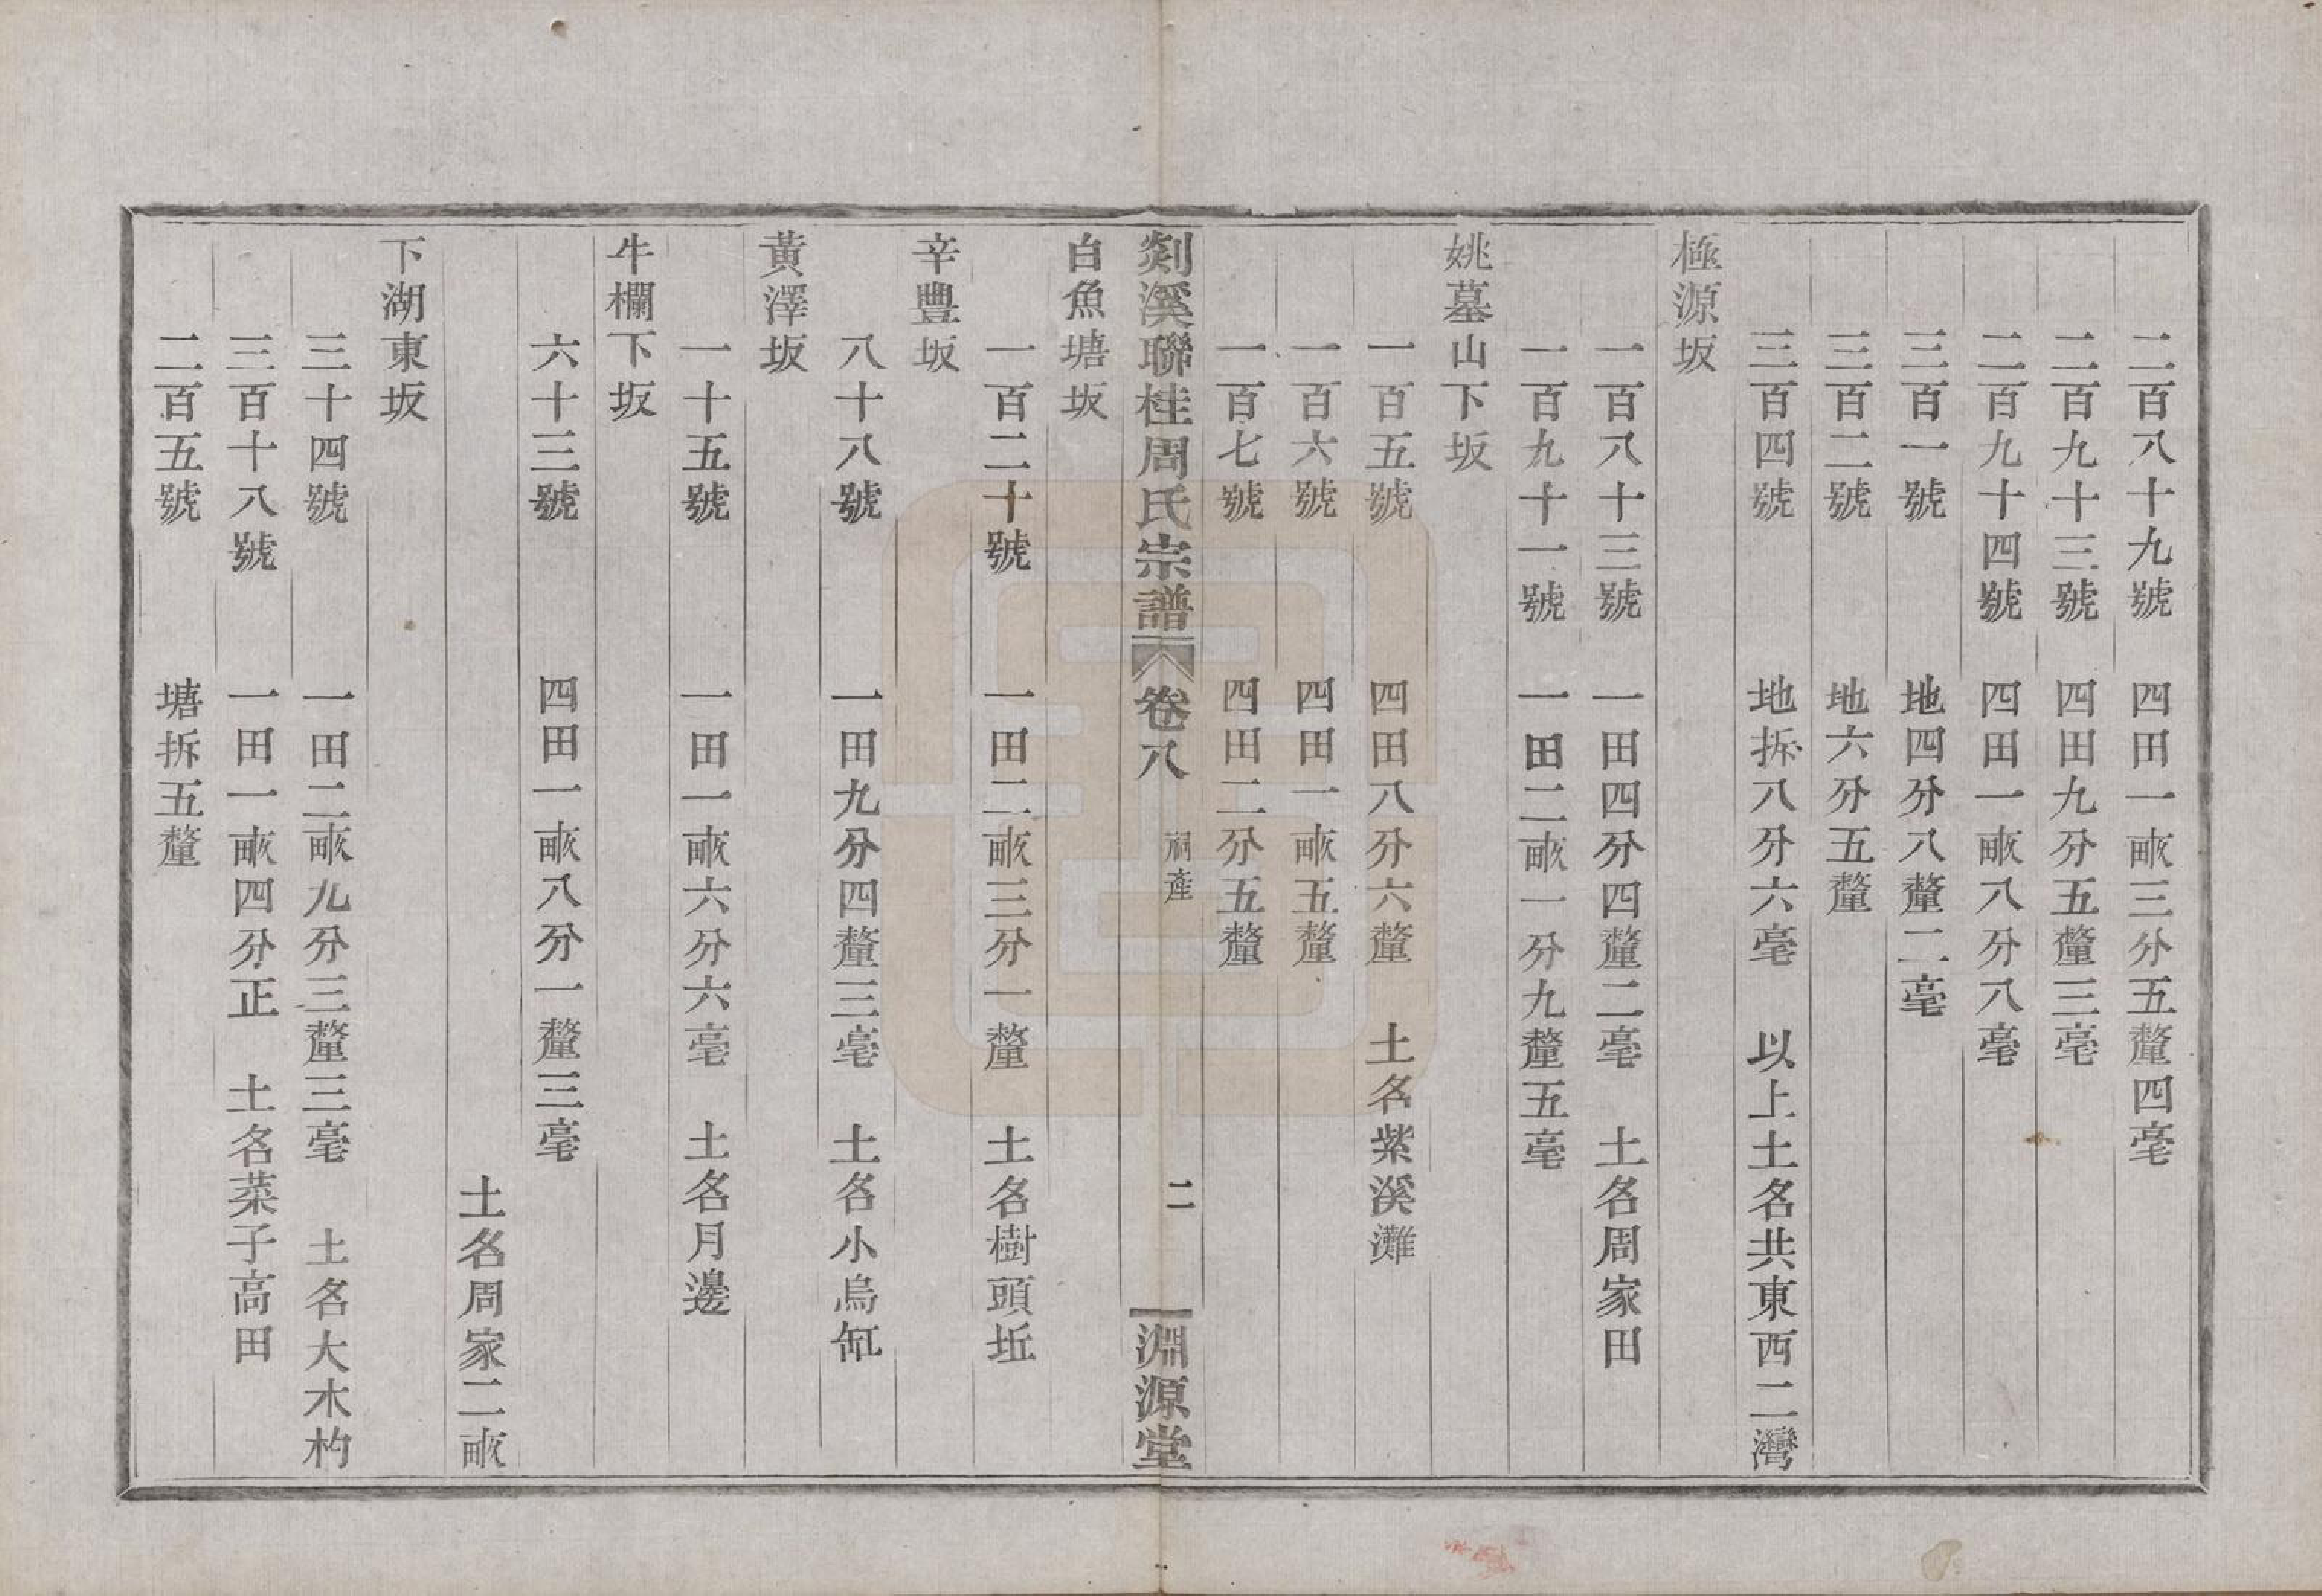 二百八十九號 四田一畝三分五釐四毫
二百九十三號 四田九分五釐三毫
二百九十四號 四田一畝八分八毫
三百一號 地四分八釐二毫
三百二號 地六分五釐
三百四號 地拆八分六毫 以上土名共東西二灣
極源坂
一百八十三號 一田四分四釐二毫 土名周家田
一百九十一號 一田二畝一分九釐五毫
姚墓山下坂
一百五號 四田八分六釐 土名紫溪灘
一百六號 四田一畝五釐
一百七號 四田二分五釐
剡溪聯桂周氏宗譜 卷八 祠產 二 淵源堂
白魚塘坂
一百二十號 一田二畝三分一釐 土名樹頭坵
辛豐坂
八十八號 一田九分四釐三毫 土名小烏缻
黃澤坂
一十五號 一田一畝六分六毫 土名月邊
牛欄下坂
六十三號 四田一畝八分一釐三毫
土名周家二畝
下湖東坂
三十四號 一田二畝九分三釐三毫 土名大木杓
三百十八號 一田一畝四分正 土名菜子高田
二百五號 塘拆五釐